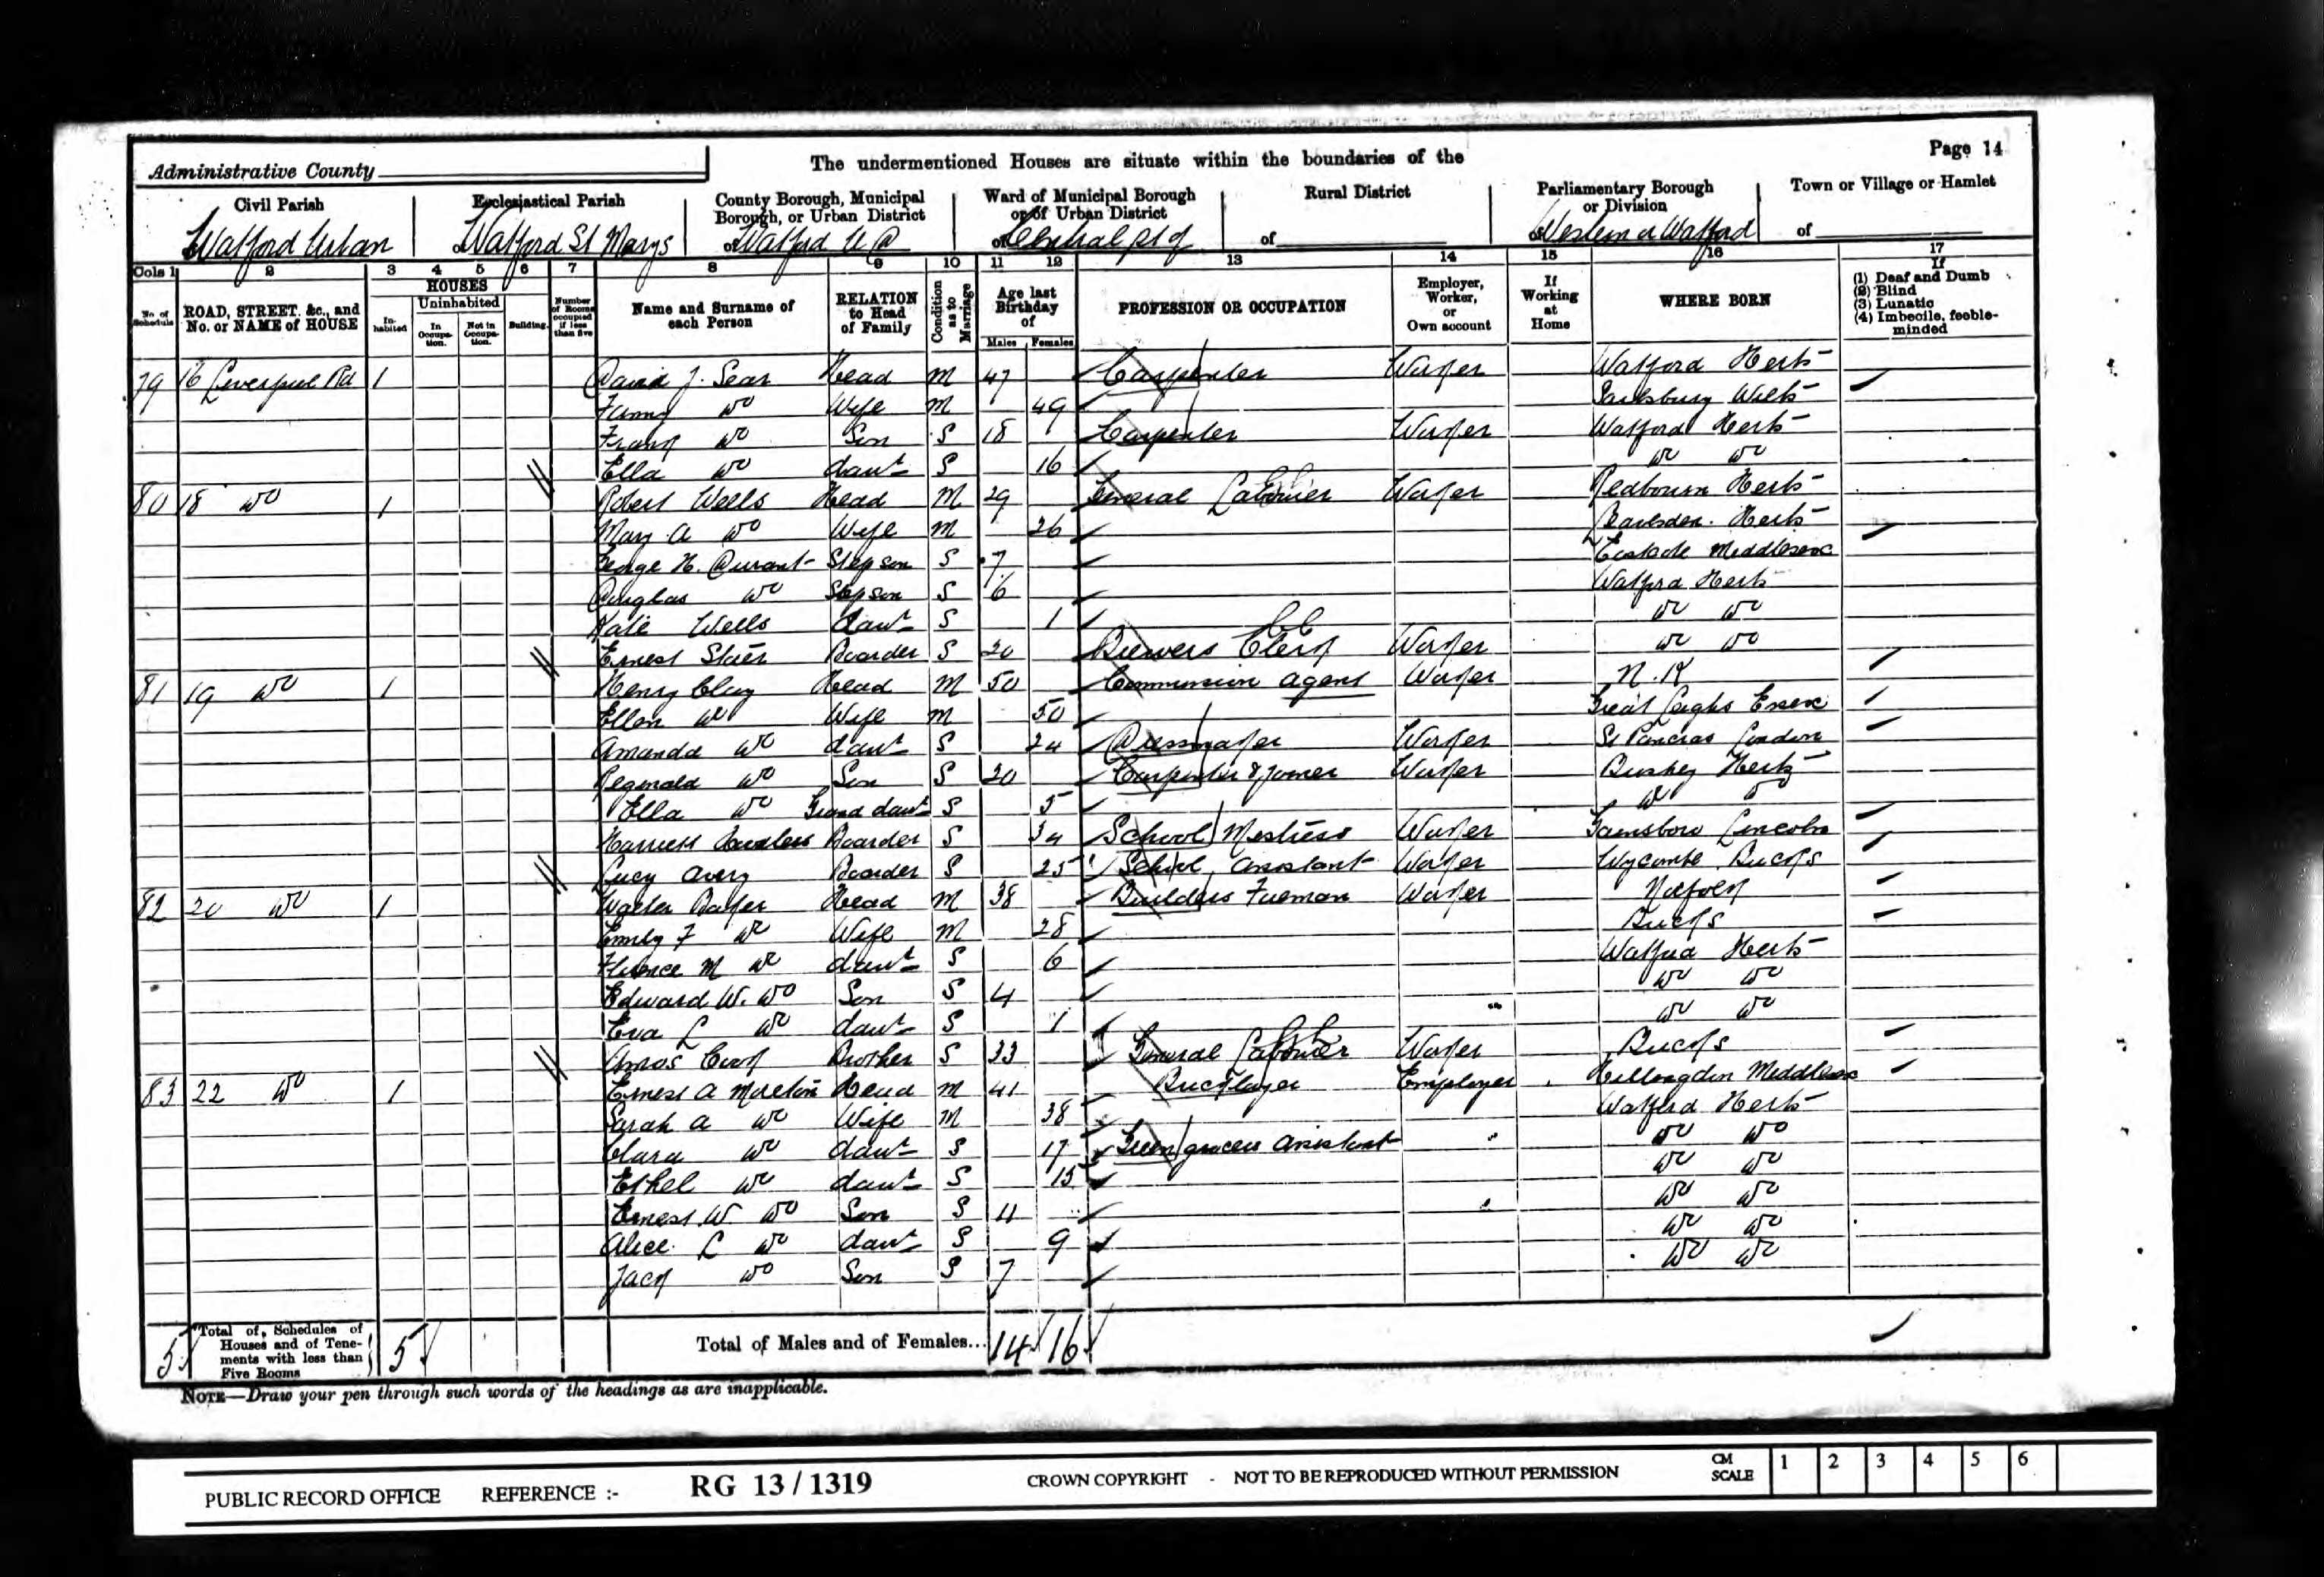 Page 14
Administrative County
The undermentioned Houses are situate within the boundaries of the
Civil Parish
Ecclesiastical Parish
County Borough, Municipal Borough, or Urban District
Ward of Municipal Borough or of Urban District
Rural District
Parliamentary Borough or Division
Town or Village or Hamlet
Watford Urban
Watford St Marys
of Watford U D
of Central pt of
of
of Western or Watford
of
Cols 1 2 3 4 5 6 7 8 9 10 11 12 13 14 15 16 17
No. of Schedule
ROAD, STREET, &c., and No. or NAME of HOUSE
HOUSES
Inhabited
Uninhabited
In Occupation.
Not in Occupation.
Building.
Number of Rooms occupied if less than five
Name and Surname of each Person
RELATION to Head of Family
Condition as to Marriage
Age last Birthday of
Males Females
PROFESSION OR OCCUPATION
Employer, Worker, or Own account
If Working at Home
WHERE BORN
If
(1) Deaf and Dumb
(2) Blind
(3) Lunatic
(4) Imbecile, feeble-minded
79 16 Liverpool Rd 1 David J. Sear Head M 47 Carpenter Worker Watford Herts
Fanny do Wife M 49 Salisbury Wilts
Frank do Son S 18 Carpenter Worker Watford Herts
Ella do daur S 16 do do
80 18 do 1 Robert Wells Head M 29 General Labourer Worker Redbourn Herts
Mary A do Wife M 26 Herts
George H. Durant Stepson S 7 Middlesex
Douglas do Stepson S 6 Watford Herts
Kate Wells daur S 1 do do
Ernest Boarder S 20 Brewers Clerk Worker do do
81 19 do 1 Henry Clay Head M 50 Commission Agent Worker N. K
Ellen do Wife M 50 Great Leighs Essex
Amanda do daur S 24 Dressmaker Worker St Pancras London
Reginald do Son S 20 Carpenter & Joiner Worker Bushey Herts
Ella do Grand daur S 5 do do
Harriett Boarder S 34 School Mistress Worker Gainsboro Lincoln
Lucy Avery Boarder S 25 School Assistant Worker Wycombe Bucks
82 20 do 1 Walter Baker Head M 38 Builders Foreman Worker Norfolk
Emily F do Wife M 28 Bucks
Florence M do daur S 6 Watford Herts
Edward W. do Son S 4 do do
Eva L do daur S 1 do do
Amos Cook Brother S 33 General Labourer Worker Bucks
83 22 do 1 Ernest A Moreton Head M 41 Bricklayer Employer Hillingdon Middlesex
Sarah A do Wife M 38 Watford Herts
Clara do daur S 17 Greengrocers Assistant do do
Ethel do daur S 15 do do
Ernest W. do Son S 11 do do
Alice L do daur S 9 do do
Jack do Son S 7 do do
5 Total of Schedules of Houses and of Tenements with less than Five Rooms 5 Total of Males and of Females... 14 16
NOTE—Draw your pen through such words of the headings as are inapplicable.
PUBLIC RECORD OFFICE REFERENCE :- RG 13 / 1319 CROWN COPYRIGHT - NOT TO BE REPRODUCED WITHOUT PERMISSION CM SCALE 1 2 3 4 5 6